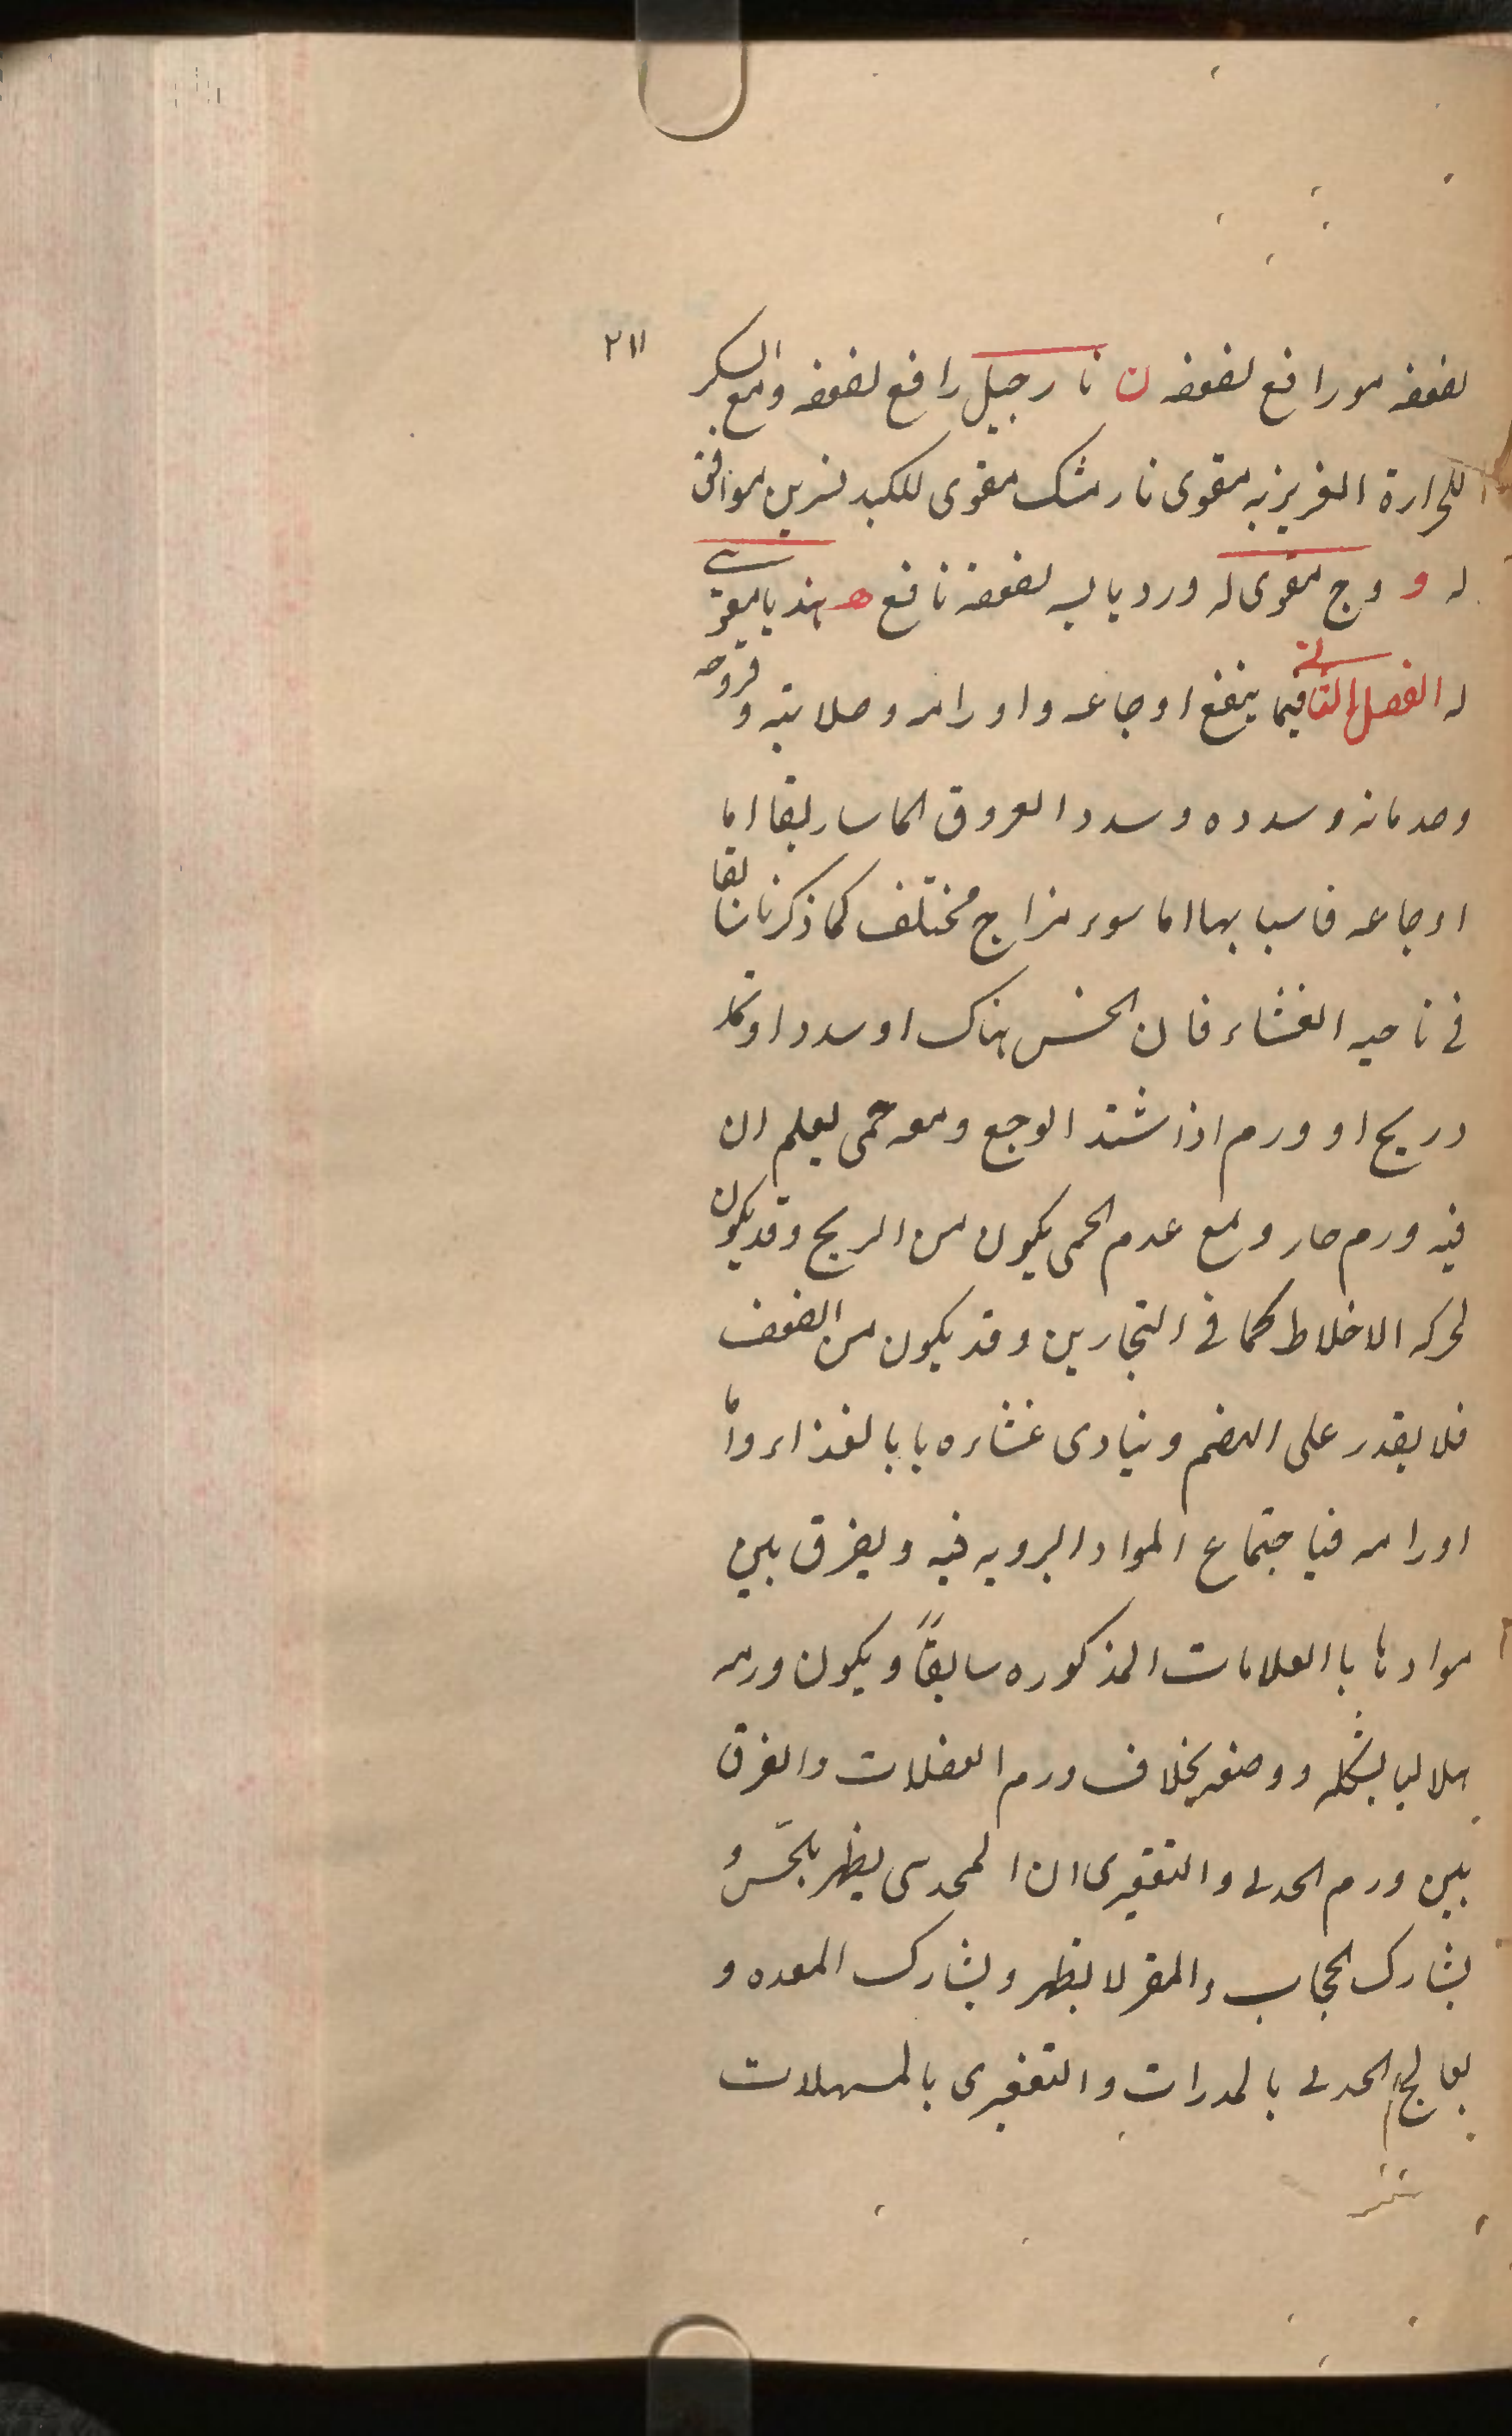 ٢١١
لضعفه مو رافع لضعفه ن نارجيل رافع لضعفه ومع السكر
للحرارة الغريزيه مقوى نارمشك مقوى للكبد نسرين موافق
له و وج مقوى له ورد يابسه لضعفه نافع ه هنديا مقوى
له الفصل الثانى فيما ينفع اوجاعه واورامه وصلابته و قروحه
وصدماته وسدده وسدد العروق الماساريقا اما
اوجاعه فاسبابها اما سوء مزاج مختلف كما ذكرنا سابقا
فى ناحيه الغشاء فان الحس هناك او سدد او
وريح او ورم اذا شتد الوجع ومعه حمى يعلم ان
فيه ورم حار ومع عدم الحمى يكون من الريح وقد يكون
لحركه الاخلاط كما فى البحارين وقد يكون من الضعف
فلا يقدر على الهضم ويتادى غشاءه بابالغذاء واما
اورامه فباجتماع المواد الرديه فيه ويفرق بين
موادها باالعلامات المذكوره سابقاً ويكون ورمه
هلاليا بشكله ووضعه بخلاف ورم العضلات والفرق
بين ورم الحدبى والتقعيرى ان المحدبى يظهر بالحسّ و
يشارك الحجاب والمقعر لا يظهر ويشارك المعده و
يعالج الحدبى بالمدرات والتقعيرى بالمسهلات